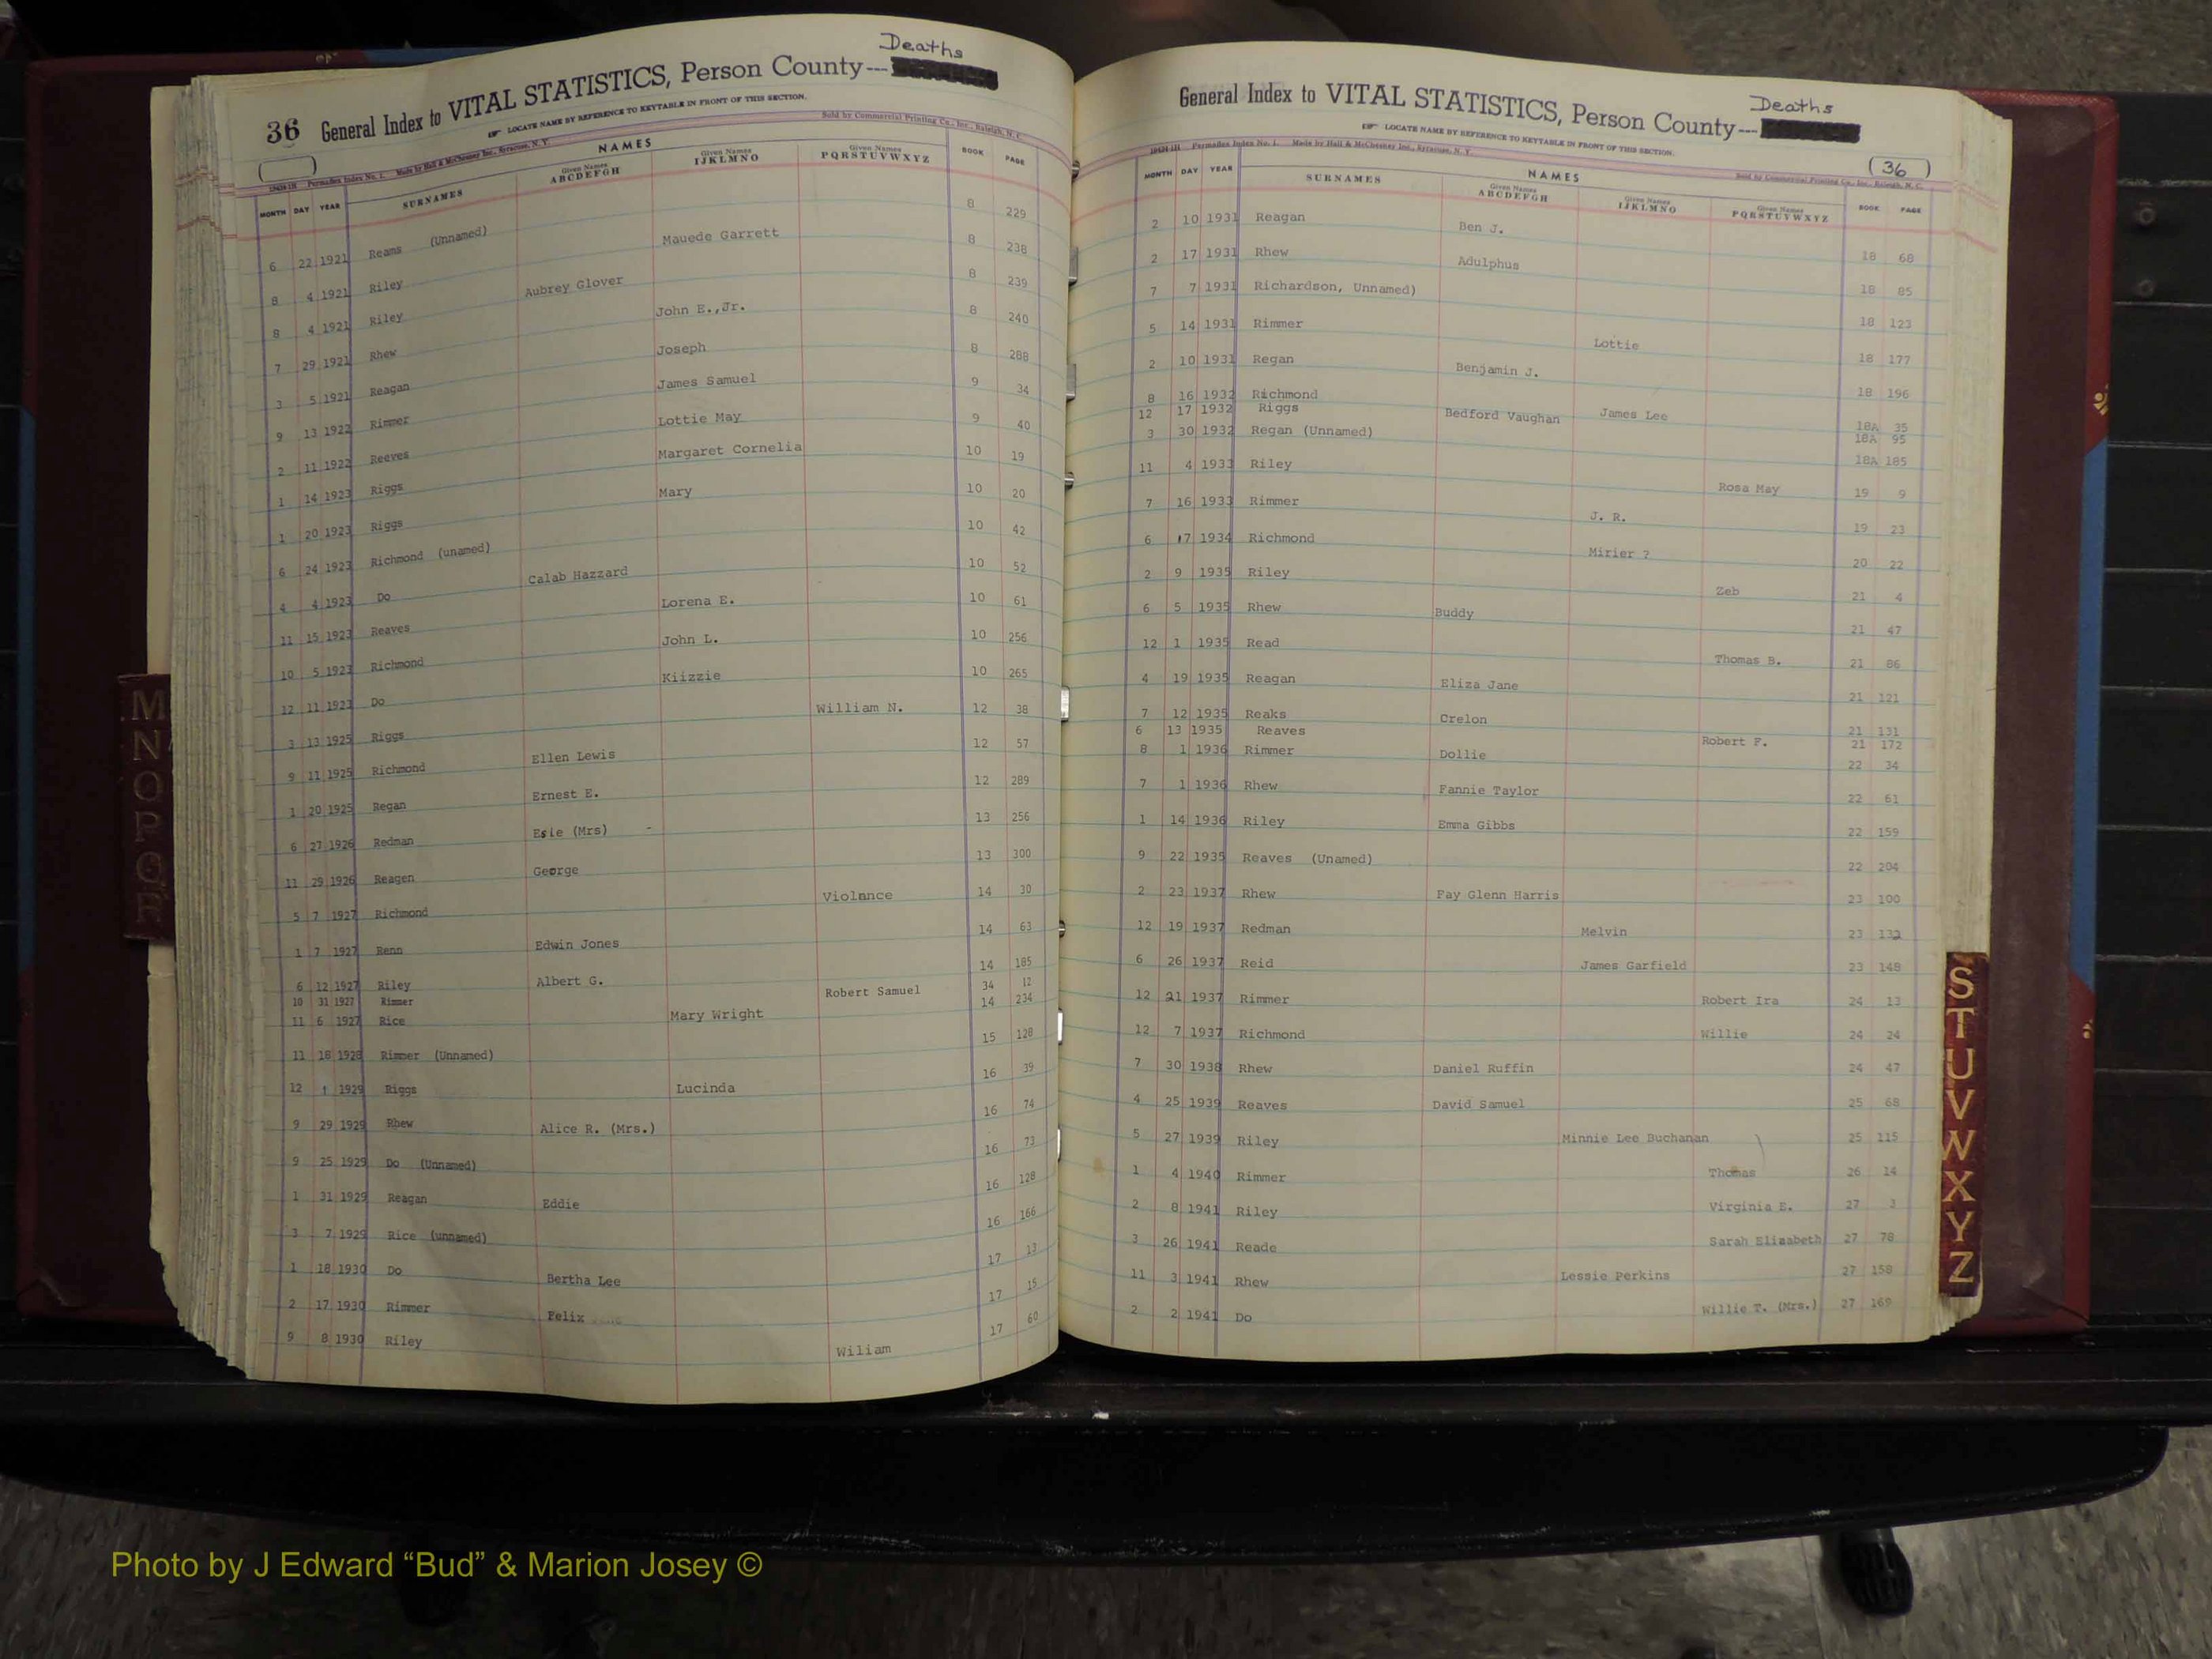 Deaths
36 General Index to VITAL STATISTICS, Person County---
LOCATE NAME BY REFERENCE TO KEYTABLE IN FRONT OF THIS SECTION.
Sold by Commercial Printing Co., Inc., Raleigh, N. C.
Made by Hall & McChesney Inc., Syracuse, N. Y.
NAMES
MONTH DAY YEAR SURNAMES Given Names ABCDEFGH Given Names IJKLMNO Given Names PQRSTUVWXYZ BOOK PAGE
6 22 1921 Reams (Unnamed) 8 229
8 4 1921 Riley Mauede Garrett 8 238
8 4 1921 Riley Aubrey Glover 8 239
7 29 1921 Rhew John E.,Jr. 8 240
3 5 1921 Reagan Joseph 8 288
9 13 1922 Rimmer James Samuel 9 34
2 11 1922 Reeves Lottie May 9 40
1 14 1923 Riggs Margaret Cornelia 10 19
1 20 1923 Riggs Mary 10 20
6 24 1923 Richmond (unamed) 10 42
4 4 1923 Do Calab Hazzard 10 52
11 15 1923 Reaves Lorena E. 10 61
10 5 1923 Richmond John L. 10 256
12 11 1923 Do Kiizzie 10 265
1 13 1925 Riggs William N. 12 38
9 11 1925 Richmond Ellen Lewis 12 57
1 20 1925 Regan Ernest E. 12 289
6 27 1926 Redman Esie (Mrs) - 13 256
11 29 1926 Reagen George 13 300
5 7 1927 Richmond Violance 14 30
1 7 1927 Renn Edwin Jones 14 63
6 12 1927 Riley Albert G. 14 185
10 31 1927 Rimmer Robert Samuel 34 12
11 6 1927 Rice Mary Wright 14 234
11 18 1928 Rimmer (Unnamed) 15 128
12 1 1929 Riggs Lucinda 16 39
9 29 1929 Rhew Alice R. (Mrs.) 16 74
9 25 1929 Do (Unnamed) 16 73
1 31 1929 Reagan Eddie 16 128
3 7 1929 Rice (unnamed) 16 166
1 18 1930 Do Bertha Lee 17 13
2 17 1930 Rimmer Felix 17 15
9 8 1930 Riley Wiliam 17 60
Deaths
General Index to VITAL STATISTICS, Person County---
LOCATE NAME BY REFERENCE TO KEYTABLE IN FRONT OF THIS SECTION.
(36)
Made by Hall & McChesney Inc., Syracuse, N. Y.
Sold by Commercial Printing Co., Inc., Raleigh, N. C.
NAMES
MONTH DAY YEAR SURNAMES Given Names ABCDEFGH Given Names IJKLMNO Given Names PQRSTUVWXYZ BOOK PAGE
2 10 1931 Reagan Ben J. 18 68
2 17 1931 Rhew Adulphus 18 85
7 7 1931 Richardson, Unnamed) 18 123
5 14 1931 Rimmer Lottie 18 177
2 10 1931 Regan Benjamin J. 18 196
8 16 1932 Richmond James Lee 18A 35
12 17 1932 Riggs Bedford Vaughan 18A 95
3 30 1932 Regan (Unnamed) 18A 185
11 4 1933 Riley Rosa May 19 9
7 16 1933 Rimmer J. R. 19 23
6 17 1934 Richmond Mirier ? 20 22
2 9 1935 Riley Zeb 21 4
6 5 1935 Rhew Buddy 21 47
12 1 1935 Read Thomas B. 21 86
4 19 1935 Reagan Eliza Jane 21 121
7 12 1935 Reaks Crelon 21 131
6 13 1935 Reaves Robert F. 21 172
8 1 1936 Rimmer Dollie 22 34
7 1 1936 Rhew Fannie Taylor 22 61
1 14 1936 Riley Emma Gibbs 22 159
9 22 1935 Reaves (Unamed) 22 204
2 23 1937 Rhew Fay Glenn Harris 23 100
12 19 1937 Redman Melvin 23 132
6 26 1937 Reid James Garfield 23 148
12 21 1937 Rimmer Robert Ira 24 13
12 7 1937 Richmond Willie 24 24
7 30 1938 Rhew Daniel Ruffin 24 47
4 25 1939 Reaves David Samuel 25 68
5 27 1939 Riley Minnie Lee Buchanan 25 115
1 4 1940 Rimmer Thomas 26 14
2 8 1941 Riley Virginia E. 27 3
3 26 1941 Reade Sarah Elizabeth 27 78
11 3 1941 Rhew Lessie Perkins 27 158
2 2 1941 Do Willie T. (Mrs.) 27 169
M
N
O
P
Q
R
S
T
U
V
W
X
Y
Z
Photo by J Edward “Bud” & Marion Josey ©